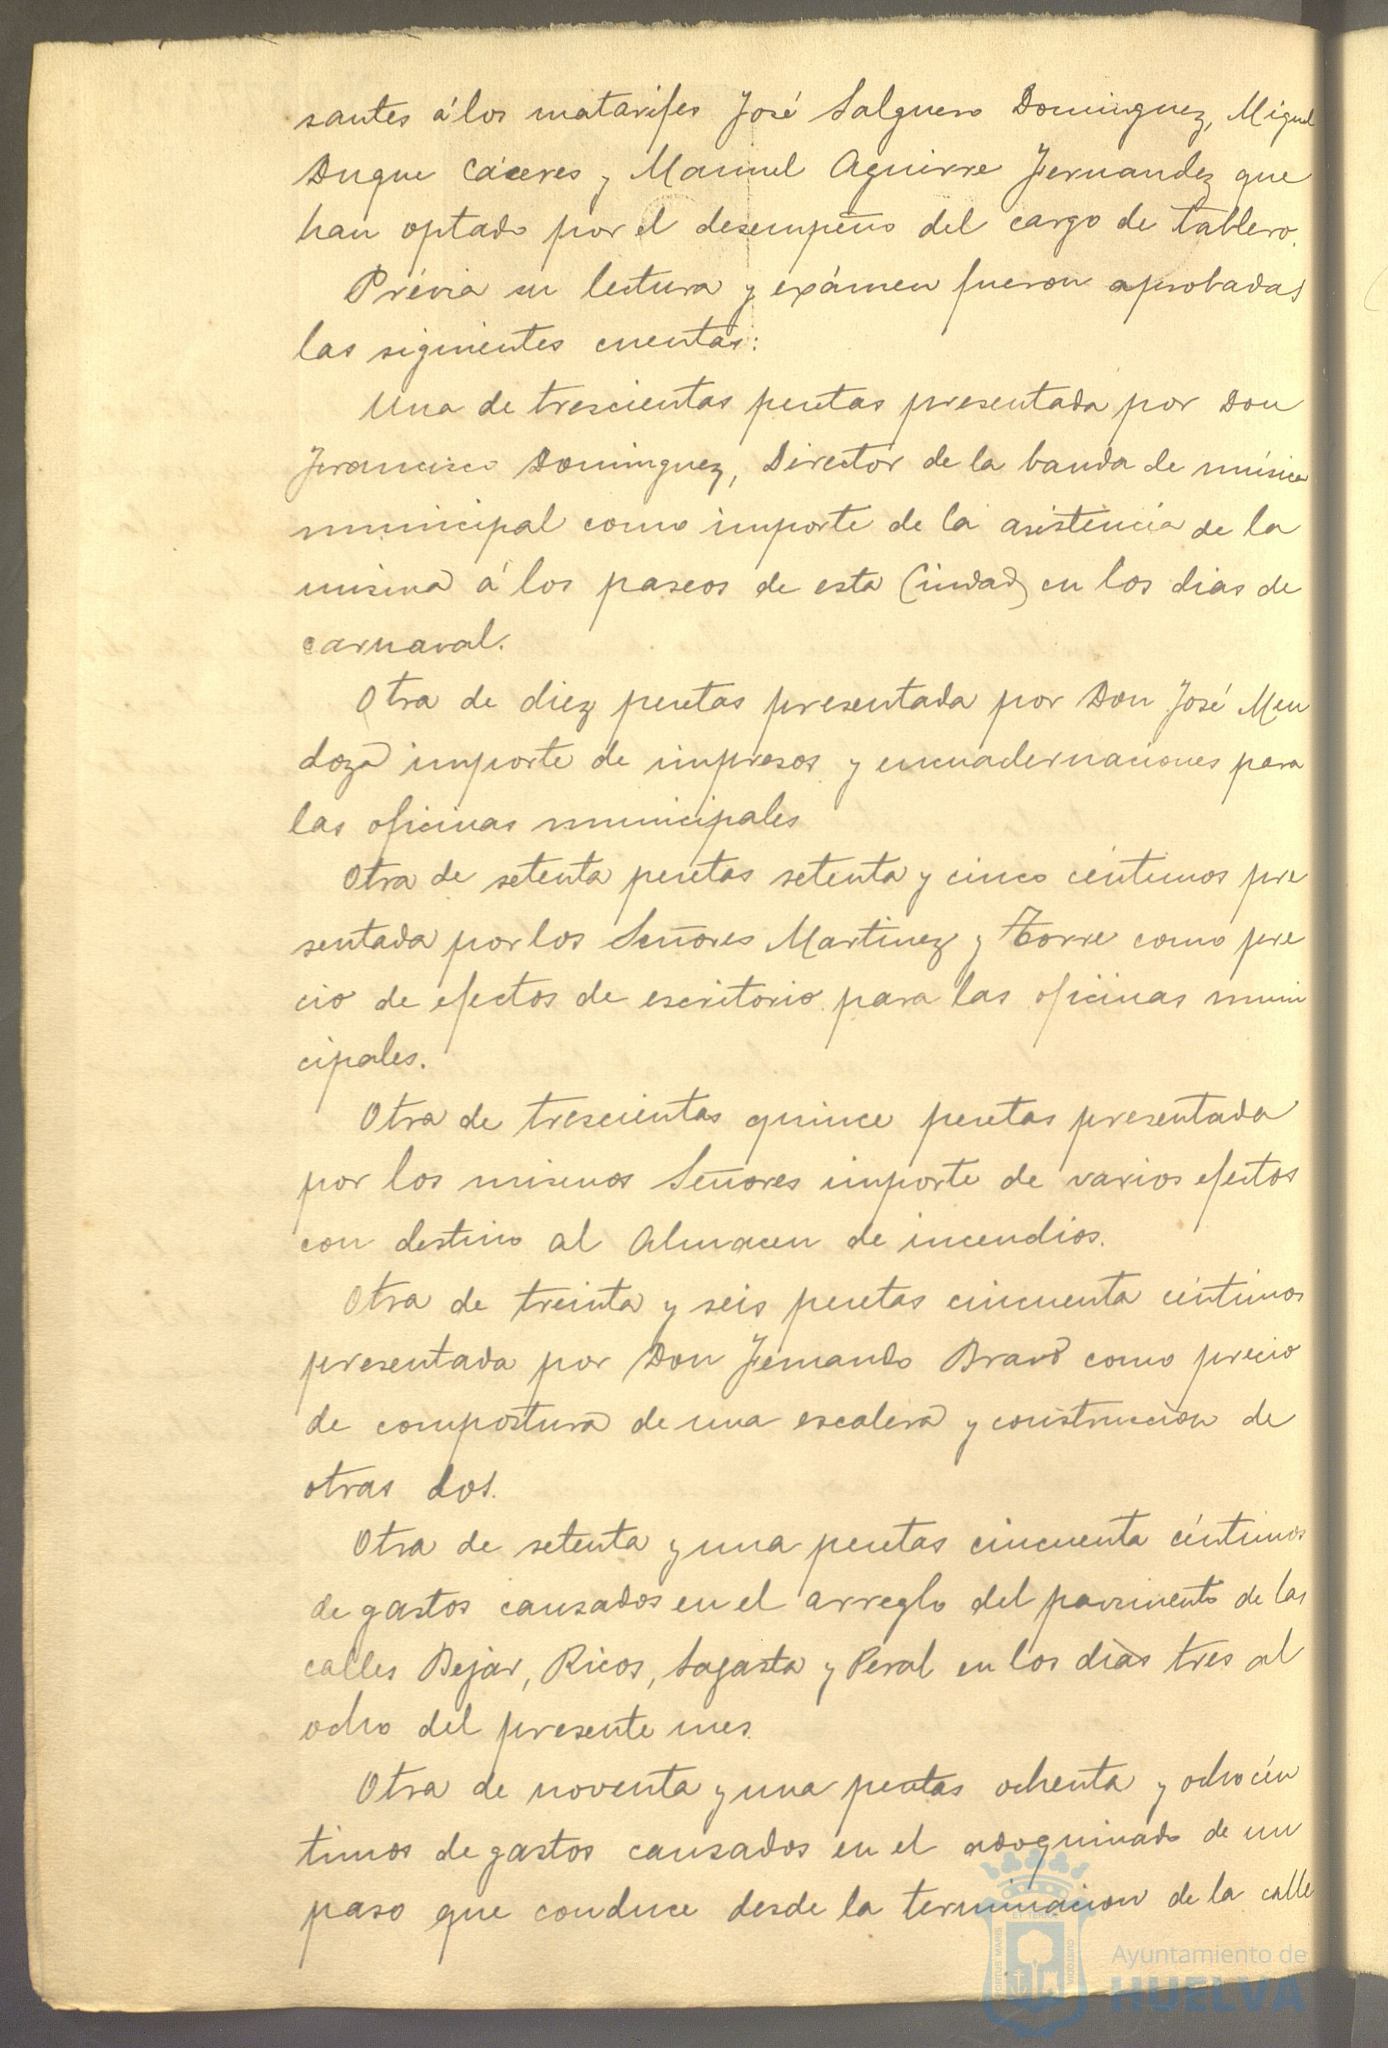 santes á los matarifes José Salguero Dominguez, Miguel
Duque Cáceres y Manuel Aguirre Fernandez que
han optado por el desempeño del cargo de tablero.
Prévia su lectura y exámen fueron aprobadas
las siguientes cuentas:
Una de trescientas pesetas presentada por Don
Francisco Dominguez, Director de la banda de música
municipal como importe de la asistencia de la
misma á los paseos de esta Ciudad en los dias de
carnaval.
Otra de diez pesetas presentada por Don José Men
doza importe de impresos y encuadernaciones para
las oficinas municipales
Otra de setenta pesetas setenta y cinco céntimos pre
sentada por los Señores Martinez y Torre como pre
cio de efectos de escritorio para las oficinas muni
cipales.
Otra de trescientas quince pesetas presentada
por los mismos Señores importe de varios efectos
con destino al Almacen de incendios.
Otra de treinta y seis pesetas cincuenta céntimos
presentada por Don Fernando Bravo como precio
de compostura de una escalera y construccion de
otras dos.
Otra de setenta y una pesetas cincuenta céntimos
de gastos causados en el arreglo del pavimento de las
calles Bejar, Ricos, Sagasta y Peral en los dias tres al
ocho del presente mes.
Otra de noventa y una pesetas ochenta y ocho cén
timos de gastos causados en el adoquinado de un
paso que conduce desde la terminacion de la calle
Ayuntamiento de
HUELVA